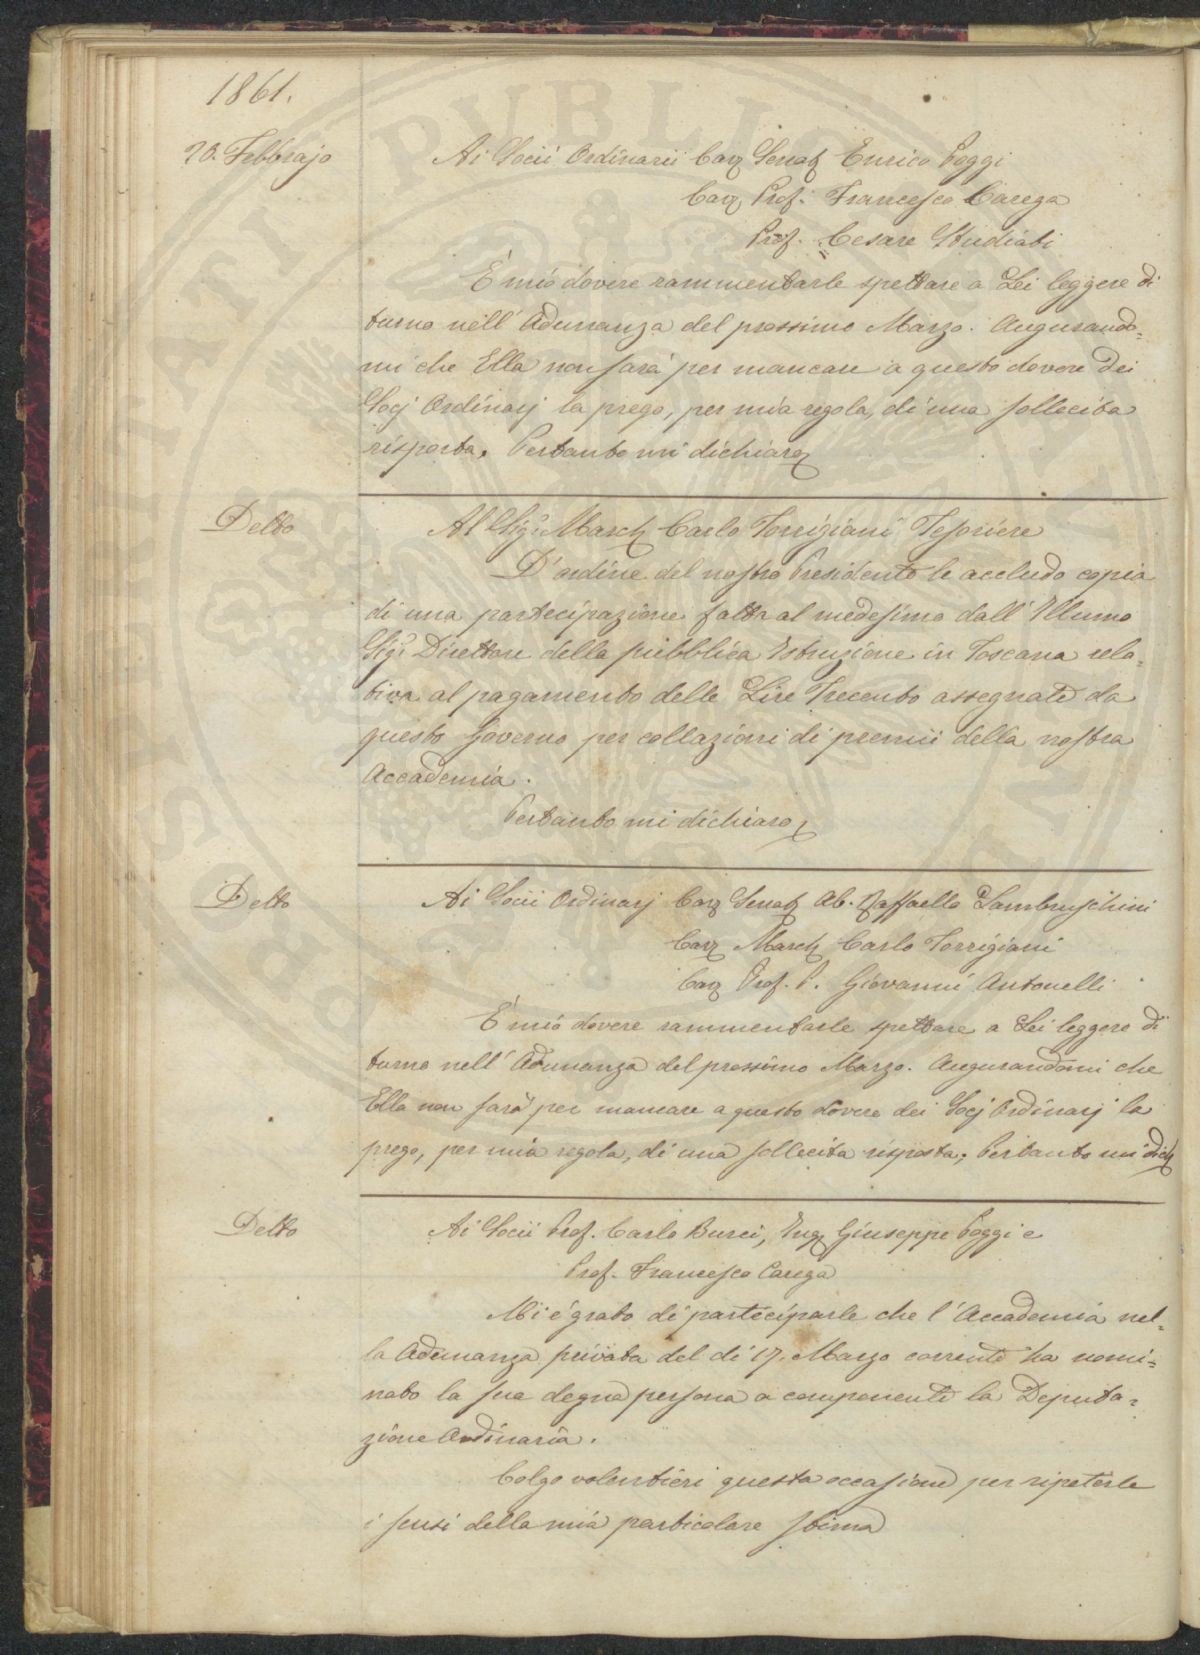 1861.
20. Febbrajo
Ai Socii Ordinarii Cav. Senat. Enrico Poggi
Cav. Prof. Francesco Carega
Prof. Cesare Studiati
È mio dovere rammentarle spettare a Lei leggere di
turno nell'Adunanza del prossimo Marzo. Augurando=
mi che Ella non sarà per mancare a questo dovere dei
Socj Ordinarj la prego, per mia regola, di una sollecita
risposta. Pertanto mi dichiaro
Detto
Al Sigr. March. Carlo Torrigiani Tesoriere
D'ordine del nostro Presidente le accludo copia
di una partecipazione fatta al medesimo dall'Illumo
Sigr. Direttore della pubblica Istruzione in Toscana rela=
tiva al pagamento delle Lire Trecento assegnate da
questo Governo per collazioni di premii della nostra
Accademia.
Pertanto mi dichiaro
Detto
Ai Socii Ordinarj Cav. Senat. Ab. Raffaello Lambruschini
Cav. March. Carlo Torrigiani
Cav. Prof. P. Giovanni Antonelli
È mio dovere rammentarle spettare a Lei leggere di
turno nell'Adunanza del prossimo Marzo. Augurandomi che
Ella non sarà per mancare a questo dovere dei Socj Ordinarj la
prego, per mia regola, di una sollecita risposta; Pertanto mi dich
Detto
Ai Socii Prof. Carlo Burci, Ing. Giuseppe Poggi e
Prof. Francesco Carega
Mi è grato di parteciparle che l'Accademia nel=
la Adunanza privata del dì 17. Marzo corrente ha nomi=
nato la sua degna persona a componente la Deputa=
zione Ordinaria.
Colgo volentieri questa occasione per ripeterle
i sensi della mia particolare stima